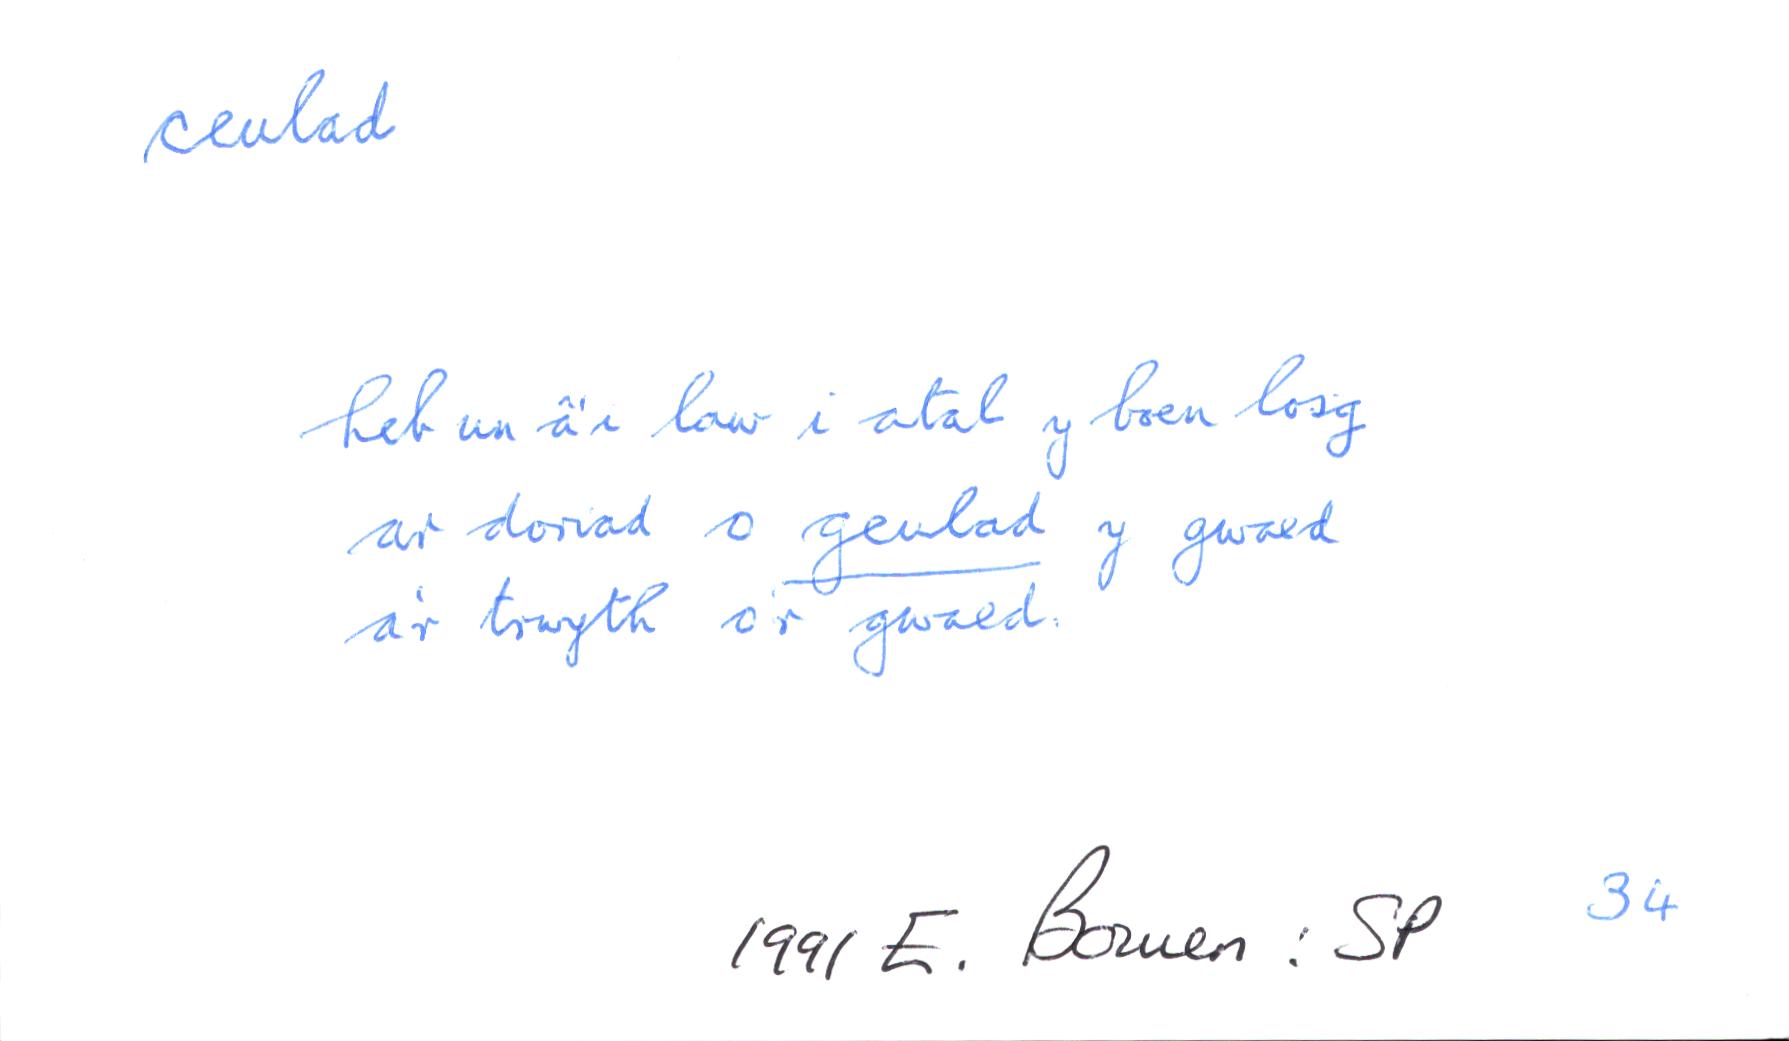 ceulad
heb un â'i law i atal y boen losg
ar doriad o geulad y gwaed
a'r trwyth o'r gwaed.
1991 E. Bowen : SP 34